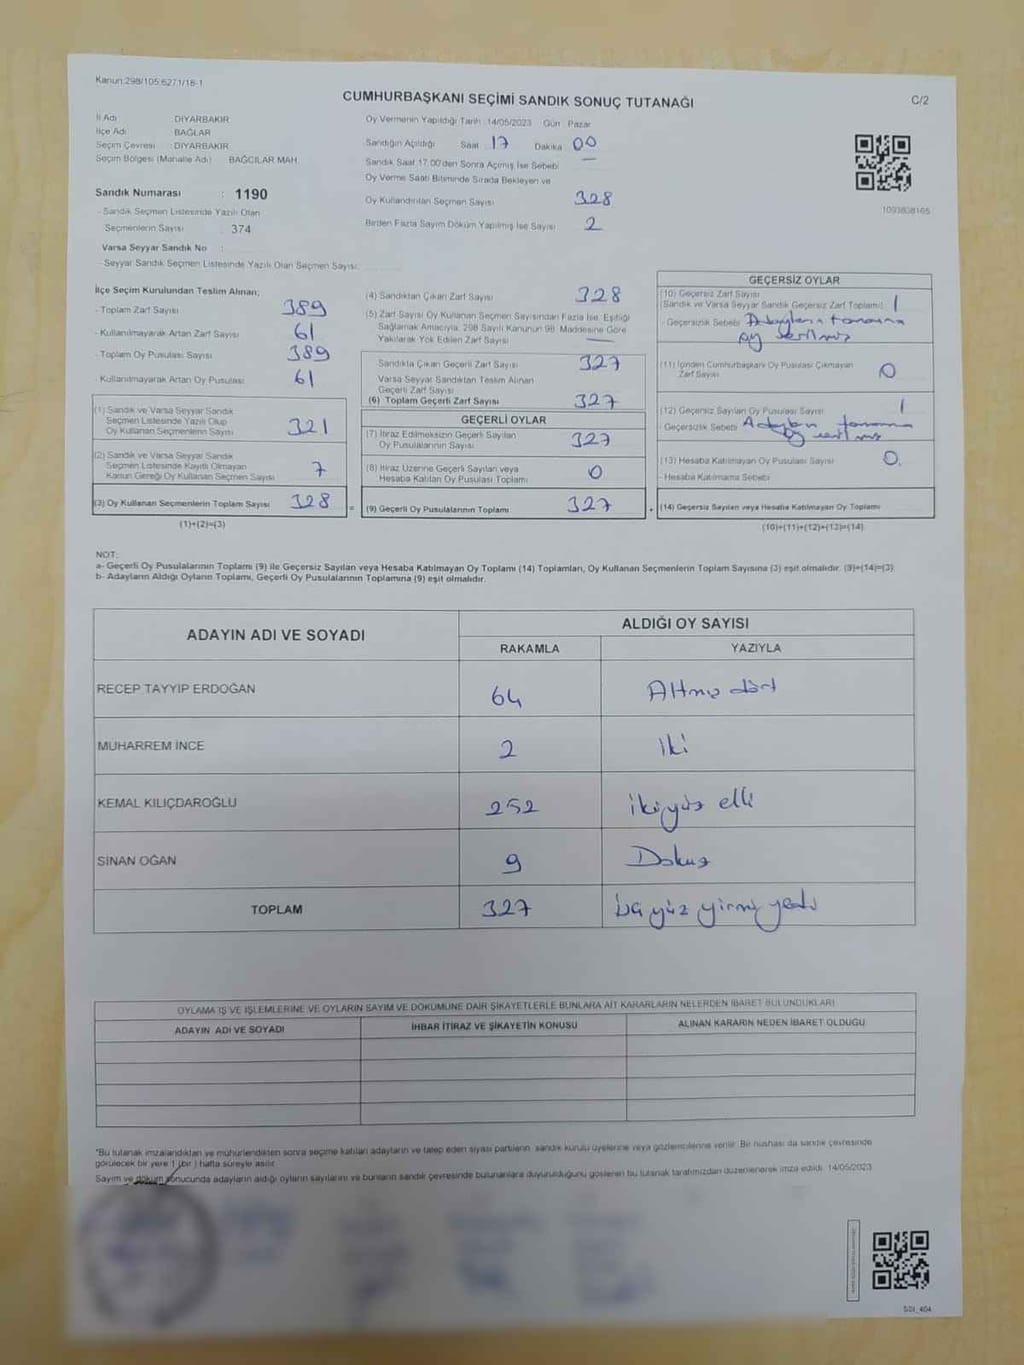 Kanun:298/105;6271/18-1
CUMHURBAŞKANI SEÇİMİ SANDIK SONUÇ TUTANAĞI
C/2
İl Adı DİYARBAKIR
İlçe Adı BAĞLAR
Seçim Çevresi : DİYARBAKIR
Seçim Bölgesi (Mahalle Adı) BAĞCILAR MAH.
Sandık Numarası : 1190
- Sandık Seçmen Listesinde Yazılı Olan
Seçmenlerin Sayısı 374
Varsa Seyyar Sandık No :
- Seyyar Sandık Seçmen Listesinde Yazılı Olan Seçmen Sayısı:
Oy Vermenin Yapıldığı Tarih : 14/05/2023 Gün : Pazar
Sandığın Açıldığı Saat 17 Dakika 00
Sandık Saat 17:00'den Sonra Açılmış İse Sebebi —
Oy Verme Saati Bitiminde Sırada Bekleyen ve
Oy Kullandırılan Seçmen Sayısı 328
Birden Fazla Sayım Döküm Yapılmış İse Sayısı 2
1093838165
İlçe Seçim Kurulundan Teslim Alınan;
- Toplam Zarf Sayısı 389
- Kullanılmayarak Artan Zarf Sayısı 61
- Toplam Oy Pusulası Sayısı 389
- Kullanılmayarak Artan Oy Pusulası 61
(1) Sandık ve Varsa Seyyar Sandık
Seçmen Listesinde Yazılı Olup
Oy Kullanan Seçmenlerin Sayısı 321
(2) Sandık ve Varsa Seyyar Sandık
Seçmen Listesinde Kayıtlı Olmayan
Kanun Gereği Oy Kullanan Seçmen Sayısı 7
(3) Oy Kullanan Seçmenlerin Toplam Sayısı 328
(1)+(2)=(3)
(4) Sandıktan Çıkan Zarf Sayısı 328
(5) Zarf Sayısı Oy Kullanan Seçmen Sayısından Fazla İse, Eşitliği
Sağlamak Amacıyla, 298 Sayılı Kanunun 98. Maddesine Göre
Yakılarak Yok Edilen Zarf Sayısı —
Sandıkta Çıkan Geçerli Zarf Sayısı 327
Varsa Seyyar Sandıktan Teslim Alınan
Geçerli Zarf Sayısı
(6) Toplam Geçerli Zarf Sayısı 327
GEÇERLİ OYLAR
(7) İtiraz Edilmeksizin Geçerli Sayılan
Oy Pusulalarının Sayısı 327
(8) İtiraz Üzerine Geçerli Sayılan veya
Hesaba Katılan Oy Pusulası Toplamı 0
= (9) Geçerli Oy Pusulalarının Toplamı 327
GEÇERSİZ OYLAR
(10) Geçersiz Zarf Sayısı
(Sandık ve Varsa Seyyar Sandık Geçersiz Zarf Toplamı) 1
- Geçersizlik Sebebi Adayların tamamına
oy verilmiş
(11) İçinden Cumhurbaşkanı Oy Pusulası Çıkmayan
Zarf Sayısı 0
(12) Geçersiz Sayılan Oy Pusulası Sayısı 1
- Geçersizlik Sebebi Adayların tamamına
oy verilmiş
(13) Hesaba Katılmayan Oy Pusulası Sayısı 0.
- Hesaba Katılmama Sebebi
+ (14) Geçersiz Sayılan veya Hesaba Katılmayan Oy Toplamı
(10)+(11)+(12)+(13)=(14)
NOT:
a- Geçerli Oy Pusulalarının Toplamı (9) ile Geçersiz Sayılan veya Hesaba Katılmayan Oy Toplamı (14) Toplamları, Oy Kullanan Seçmenlerin Toplam Sayısına (3) eşit olmalıdır. (9)+(14)=(3)
b- Adayların Aldığı Oyların Toplamı, Geçerli Oy Pusulalarının Toplamına (9) eşit olmalıdır.
ADAYIN ADI VE SOYADI ALDIĞI OY SAYISI
RAKAMLA YAZIYLA
RECEP TAYYİP ERDOĞAN 64 Altmış dört
MUHARREM İNCE 2 iki
KEMAL KILIÇDAROĞLU 252 ikiyüz elli
SİNAN OĞAN 9 Dokuz
TOPLAM 327 üç yüz yirmi yedi
OYLAMA İŞ VE İŞLEMLERİNE VE OYLARIN SAYIM VE DÖKÜMÜNE DAİR ŞİKAYETLERLE BUNLARA AİT KARARLARIN NELERDEN İBARET BULUNDUKLARI
ADAYIN ADI VE SOYADI İHBAR İTİRAZ VE ŞİKAYETİN KONUSU ALINAN KARARIN NEDEN İBARET OLDUĞU
*Bu tutanak imzalandıktan ve mühürlendikten sonra seçime katılan adayların ve talep eden siyasi partilerin sandık kurulu üyelerine veya gözlemcilerine verilir. Bir nüshası da sandık çevresinde
görülecek bir yere 1 (bir) hafta süreyle asılır.
Sayım ve döküm sonucunda adayların aldığı oyların sayılarını ve bunların sandık çevresinde bulunanlara duyurulduğunu gösteren bu tutanak tarafımızdan düzenlenerek imza edildi. 14/05/2023
SGİ_404